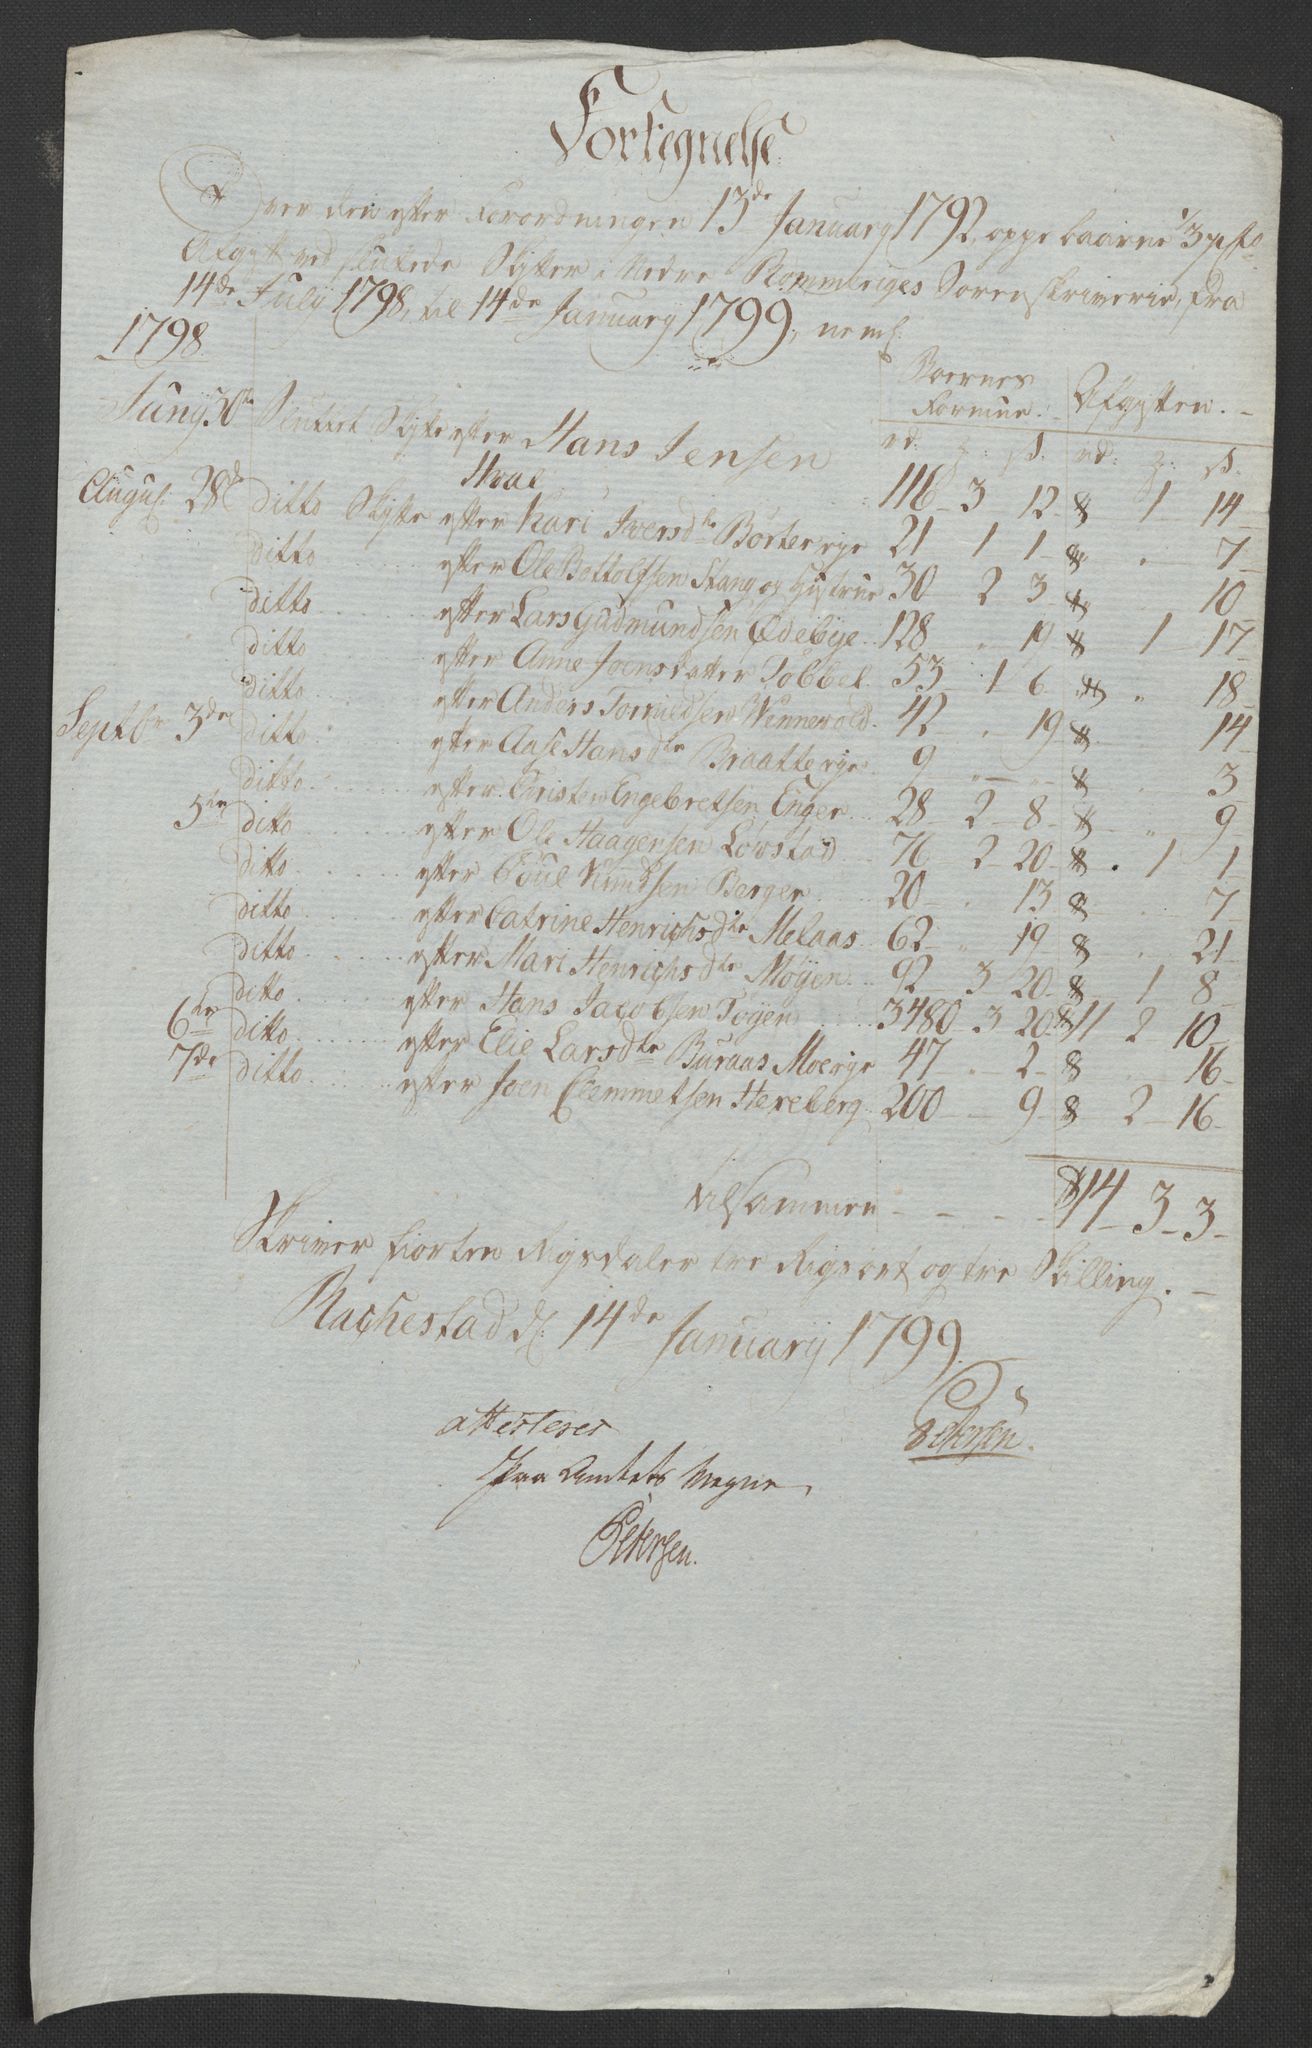 Fortegnelse
Over den efter Forordningen 13de January 1792, oppebaarne 1/3 pCto
Afgift ved sluttede Skifter i Nedre Rommeriges Sorenskriverie, fra
14de July 1798, til 14de January 1799, neml:
1798.
Boernes Formue. Afgiften.
rd: z: s. rd: z: s.
Juny 30te Sluttet Skifte efter Hans Jensen
Hval 116 3 12 " 1 14
August 28de ditto Skifte efter Kari Iversdtr Børtereje 21 1 1 " " 7
ditto efter Ole Bottolfsen Stang og Hustrue 30 2 3 " " 10
ditto efter Lars Gudmundsen Ødebye 128 " 19 " 1 17
ditto efter Anne Joensdatter Tobbel 53 1 6 " " 18
ditto efter Anders Torrildsen Winnerold 42 " 19 " " 14
Septbr 3de ditto efter Aase Hansdtr Braatteeje 9 " " " " 3
ditto efter Christen Engebretsen Enger 28 2 8 " " 9
5te ditto efter Ole Haagensen Løvstad 76 2 20 " 1 1
ditto efter Poul Knudsen Berger 20 " 13 " " 7
ditto efter Catrine Henrichsdtr Melaas 62 " 19 " " 21
ditto efter Mari Henrichsdtr Møyen 92 3 20 " 1 8
ditto efter Hans Jacobsen Tøyen 3480 3 20 11 2 10
6te ditto efter Elie Larsdtr Buraas Moeeje 47 " 2 " " 16
7de ditto efter Joen Clemmetsen Hexeberg 200 " 9 " 2 16
tilsammen 14 3 3
Skriver fiorten Rigsdaler tre Rigsort og tre Skilling.
Rachestad d: 14de January 1799.
Petersen.
attesterer
Paa Amtets Vegne
Petersen.